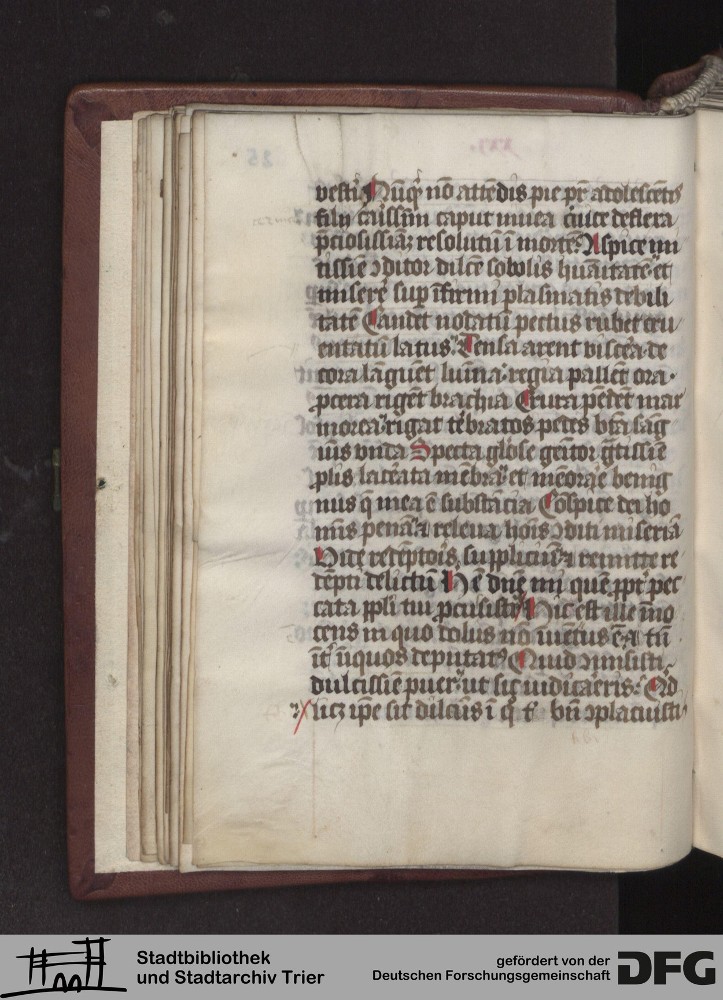 vesti Nūqͥ nō attēdis pie pr̄ adolescētis
filij caͥssīm caput niuea ceruice deflexa
p̄ciosissiāꝫ resolutū ī mortē Aspice mi
tissīe ꝯditor dilc̄e sobolis hūanitatē et
miserē suꝑ īfirmi plasmatis debili
tatē Candet nudatū pectus rubet cru
entatū latus Tensa arent viscera de
cora lāguēt lumīa regia pallēt ora
ꝓcera rigēt brachia Crura pēdēt mar
morea rigat t̄ebratos pedes bt̄i sāg
uīs vnda Specta glōse genitor gͣtissīe
ꝓlis lac̄ata mēbra et mēorāe benig
nus q̄ mea ē substācia Cōspice dei ho
mīs penā et releua hoīs ꝯditi miseriā
Vide redēptoris suppliciū et remitte re
dēpti delictū Hic ē dn̄e mi quē ꝓpt̄ pec
cata ppli tui ꝑcussisti Hic est ille īno
cens in quo dolus nō īuētus ē et tn̄
īt̄ īiquos deputatꝰ Quid ꝯmisisti
dulcissīe puer ut sic iudicaͤris Qd
licꝫ ip̄e sit dilc̄us ī q t bn̄ ꝯplacuisti
Stadtbibliothek
und Stadtarchiv Trier
gefördert von der
Deutschen Forschungsgemeinschaft
DFG